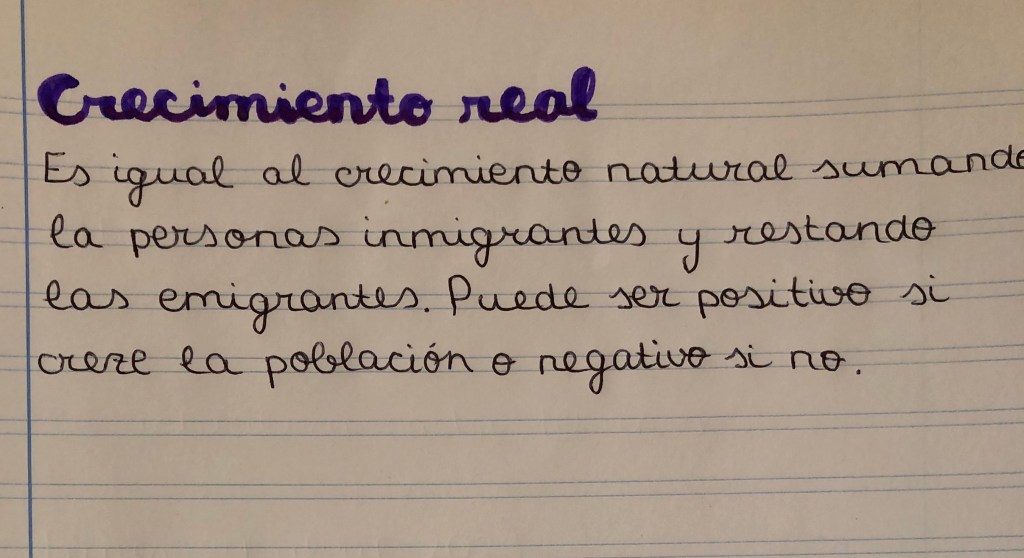 Crecimiento real
Es igual al crecimiento natural sumando
la personas inmigrantes y restando
las emigrantes. Puede ser positivo si
creze la población o negativo si no.